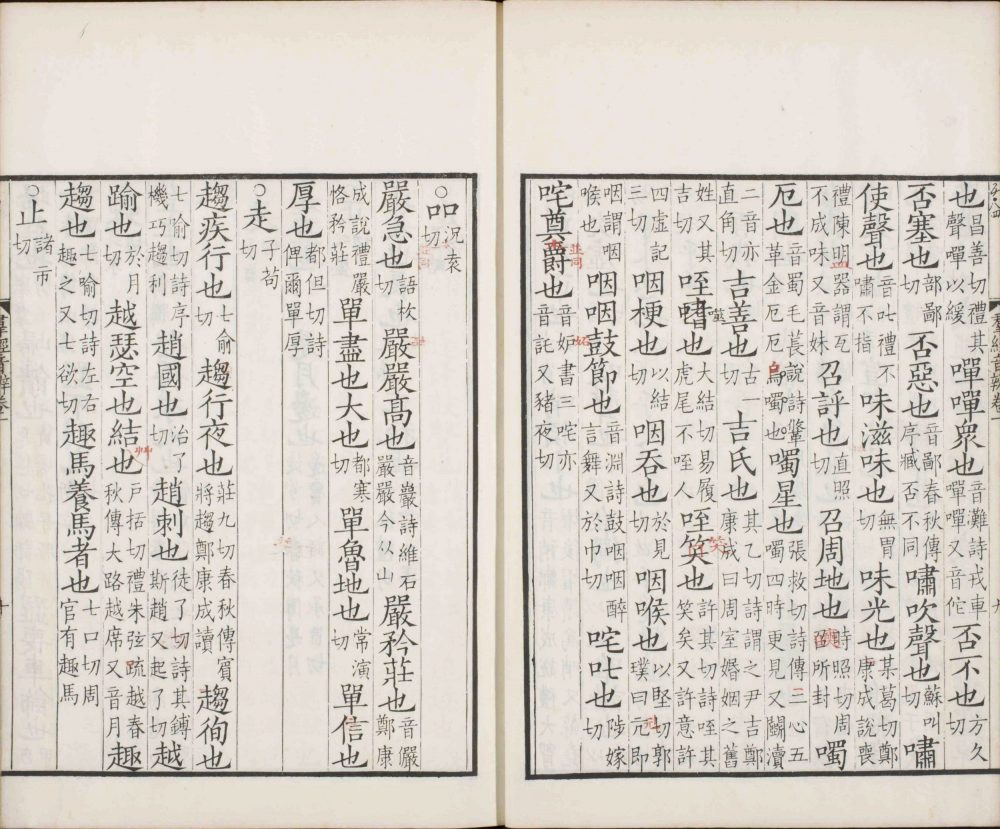 也昌善切禮其聲嘽以緩嘽嘽衆也音灘詩戎車嘽嘽又音佗否不也方久切
否塞也部鄙切否惡也音鄙春秋傳序臧否不同嘯吹聲也蘇叫切嘯
使聲也音叱禮不嘯不指味滋味也無胃切味光也某葛切鄭康成說喪
禮陳明器謂瓦不成味又音妹召評也直照切召周地也時照切周召所封噣
厄也音蜀毛萇說詩鞏革金厄厄烏噣也噣星也張救切詩傳三心五噣四時更見又鬬瀆
二音亦直角切吉善也古一切吉氏也其乙切詩謂之尹吉鄭康成曰周室婚姻之舊
姓又其吉切咥嗜也大結切易履虎尾不咥人咥笑也許其切詩咥其笑矣又許意許
四虛記三切咽哽也以結切咽吞也於見切咽喉也以堅切郭璞曰亢即
咽謂咽喉也咽咽鼓節也音淵詩鼓咽咽醉言舞又於巾切咤吐也陟嫁切
咤奠爵也音妒書三咤亦音託又豬夜切
○吅況袁切
嚴急也語杴切嚴嚴高也音巖詩維石嚴嚴今以山嚴矜莊也音儼鄭康
成說禮嚴恪矜莊單盡也大也都寒切單魯地也常演切單信也
厚也都但切詩俾爾單厚
○走子苟切
趨疾行也七俞切趨行夜也莊九切春秋傳賓將趨鄭康成讀趨徇也
七喻切詩序機巧趨利趙國也治了切趙刺也徒了切詩其鎛斯趙又起了切越
踰也於月切越瑟空也結也戶括切禮朱弦疏越春秋傳大路越席又音月趣
趨也七喻切詩左右趣之又七欲切趣馬養馬者也七口切周官有趣馬
○止諸市切